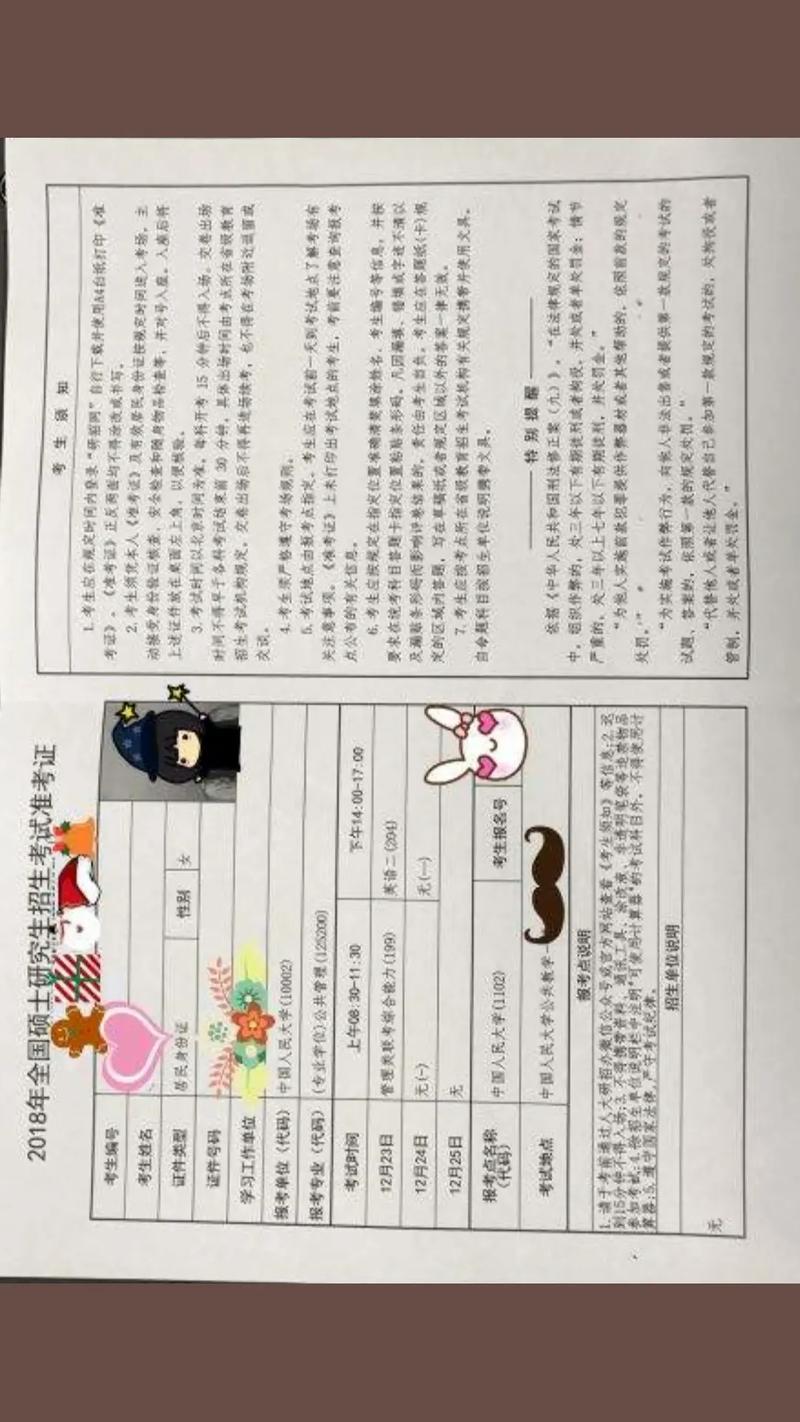 2018年全国硕士研究生招生考试准考证
考生编号
考生姓名
证件类型 居民身份证 性别 女
证件号码
学习工作单位
报考单位(代码) 中国人民大学(10002)
报考专业(代码) (专业学位)公共管理(125200)
考试时间 上午08:30-11:30 下午14:00-17:00
12月23日 管理类联考综合能力(199) 英语二(204)
12月24日 无(-) 无(—)
12月25日 无
报考点名称(代码) 中国人民大学(1102) 考生报名号
考试地点 中国人民大学公共教学
报考点说明
1.请于考前通过人大研招办微信公众号或官方网站查看《考生须知》等信息;2.迟
到15分钟不得入场;3.不得携带资料、通讯工具、涂改液、非透明笔袋等违禁物品
参加考试;4.除招生单位说明栏中注明"可使用计算器"的考试科目外,不得使用计
算器;5.遵守国家法律,严守考试纪律。
招生单位说明
无
考生须知
1.考生应在规定时间内登录“研招网”自行下载并使用A4白纸打印《准
考证》。《准考证》正反两面均不得涂改或书写。
2.考生须凭本人《准考证》及有效居民身份证按规定时间进入考场,主
动接受身份验证核查、安全检查和随身物品检查等,并对号入座。入座后将
上述证件放在桌面左上角,以便核验。
3.考试时间以北京时间为准。每科开考 15 分钟后不得入场。交卷出场
时间不得早于各科考试结束前 30 分钟,具体出场时间由考点所在省级教育
招生考试机构规定。交卷出场后不得再进场续考,也不得在考场附近逗留或
交谈。
4.考生须严格遵守考场规则。
5.考试地点由报考点指定。考生应在考试前一天到考试地点了解考场有
关注意事项。《准考证》上未打印出考试地点的考生,考前要注意查询报考
点公布的有关信息。
6.考生应按规定在指定位置准确清楚填涂姓名、考生编号等信息,并按
要求在统考科目答题卡指定位置粘贴条形码。凡因漏填、错填或字迹不清以
及漏贴条形码而影响评卷结果的,责任由考生自负。考生应在答题纸(卡)规
定的区域内答题,写在草稿纸或者规定区域以外的答案一律无效。
7.考生应按考点所在省级教育招生考试机构有关规定携带并使用文具。
自命题科目按招生单位说明携带文具。
特别提醒
依据《中华人民共和国刑法修正案(九)》,“在法律规定的国家考试
中,组织作弊的,处三年以下有期徒刑或者拘役,并处或者单处罚金;情节
严重的,处三年以上七年以下有期徒刑,并处罚金。”
“为他人实施前款犯罪提供作弊器材或者其他帮助的,依照前款的规定
处罚。”
“为实施考试作弊行为,向他人非法出售或者提供第一款规定的考试的
试题、答案的,依照第一款的规定处罚。”
“代替他人或者让他人代替自己参加第一款规定的考试的,处拘役或者
管制,并处或者单处罚金。”